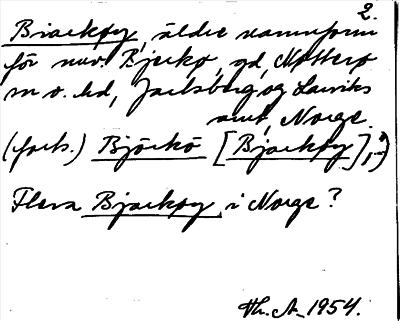 2.
Biarkøy, äldre namnform
för nuv. Bjerkø, gd, Nøtterø
m o. hd, Jarlsberg og Larviks
amt, Norge
(forts.) Björkö [Bjarkøy],?)
Flera Bjarkøy i Norge?
Th. A. 1954.